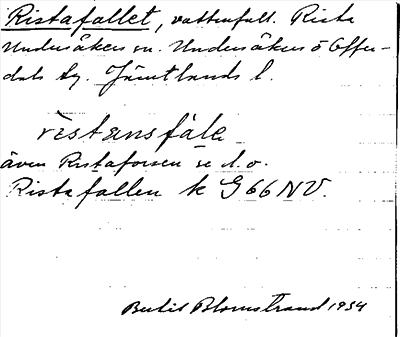 Ristafallet, vattenfall. Rista
Undersåkers sn. Undersåkers o Offer-
dals tg. Jämtlands l.
ristansfalə
även Ristaforsen se d. o.
Ristafallen k G 66 NV.
Bertil Blomstrand 1934